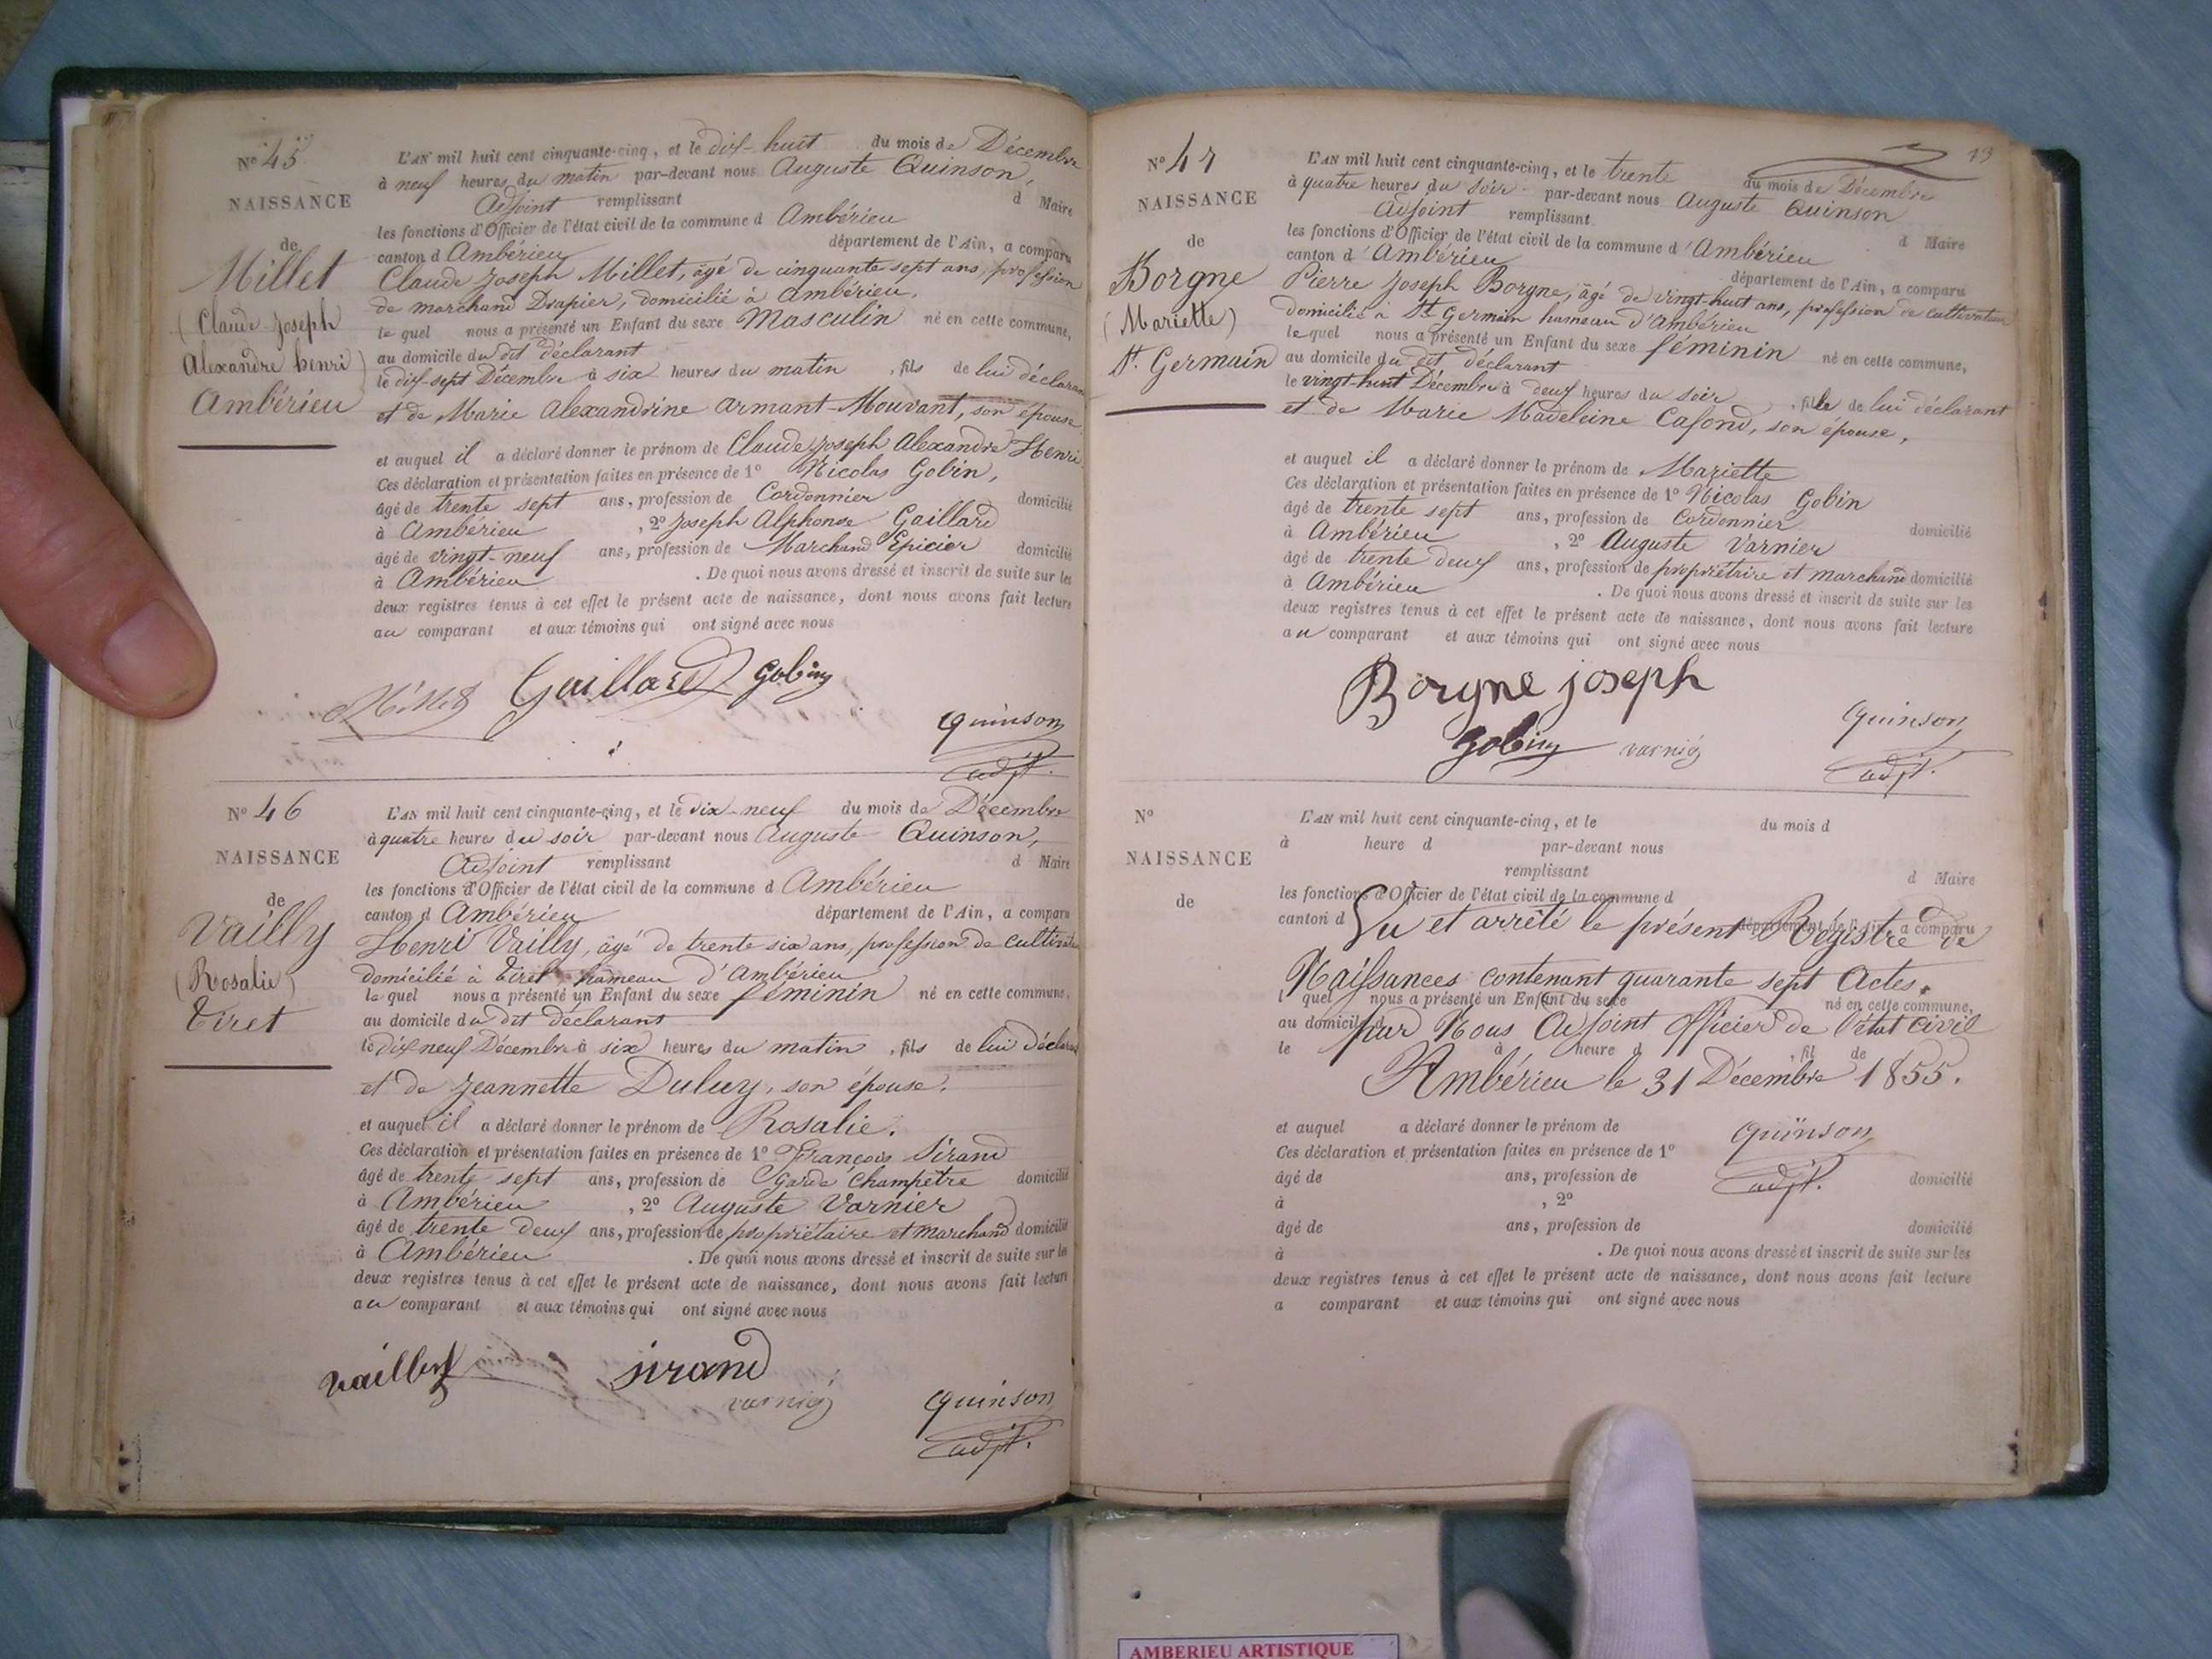 N° 45
NAISSANCE
de
Millet
(Claude Joseph
Alexandre henri)
Ambérieu
L'AN mil huit cent cinquante-cinq, et le dix-huit du mois de Décembre
à neuf heures du matin par-devant nous Auguste Quinson,
Adjoint remplissant d Maire
les fonctions d'Officier de l'état civil de la commune d Ambérieu
canton d Ambérieu département de l'Ain, a comparu
Claude Joseph Millet, âgé de cinquante sept ans, profession
de marchand Drapier, domicilié à Ambérieu,
le quel nous a présenté un Enfant du sexe Masculin né en cette commune,
au domicile du dit déclarant
le dix-sept Décembre à six heures du matin , fils de lui déclarant
et de Marie Alexandrine Armant-Mouvant, son épouse
et auquel il a déclaré donner le prénom de Claude Joseph Alexandre Henri
Ces déclaration et présentation faites en présence de 1° Nicolas Gobin,
âgé de trente sept ans, profession de Cordonnier domicilié
à Ambérieu , 2° Joseph Alphonse Gaillard
âgé de vingt-neuf ans, profession de Marchand Epicier domicilié
à Ambérieu . De quoi nous avons dressé et inscrit de suite sur les
deux registres tenus à cet effet le présent acte de naissance, dont nous avons fait lecture
au comparant et aux témoins qui ont signé avec nous
Millet Gaillard Gobin
Quinson
adjt.
N° 46
NAISSANCE
de
Vailly
(Rosalie)
Tiret
L'AN mil huit cent cinquante-cinq, et le dix-neuf du mois de Décembre
à quatre heures du soir par-devant nous Auguste Quinson,
Adjoint remplissant d Maire
les fonctions d'Officier de l'état civil de la commune d Ambérieu
canton d Ambérieu département de l'Ain, a comparu
Henri Vailly, âgé de trente six ans, profession de cultivateur
domicilié à Tiret hameau d'Ambérieu
le quel nous a présenté un Enfant du sexe féminin né en cette commune,
au domicile du dit déclarant
le dix neuf Décembre à six heures du matin , fils de lui déclarant
et de Jeannette Duluy, son épouse.
et auquel il a déclaré donner le prénom de Rosalie.
Ces déclaration et présentation faites en présence de 1° François Sirand
âgé de trente sept ans, profession de Garde Champêtre domicilié
à Ambérieu , 2° Auguste Varnier
âgé de trente deux ans, profession de propriétaire et marchand domicilié
à Ambérieu . De quoi nous avons dressé et inscrit de suite sur les
deux registres tenus à cet effet le présent acte de naissance, dont nous avons fait lecture
au comparant et aux témoins qui ont signé avec nous
Vailly sirand
varnier
Quinson
adjt.
13
N° 47
NAISSANCE
de
Borgne
(Mariette)
St. Germain
L'AN mil huit cent cinquante-cinq, et le trente du mois de Décembre
à quatre heures du soir par-devant nous Auguste Quinson
Adjoint remplissant d Maire
les fonctions d'Officier de l'état civil de la commune d'Ambérieu
canton d'Ambérieu département de l'Ain, a comparu
Pierre Joseph Borgne, âgé de vingt-huit ans, profession de cultivateur
domicilié à St Germain hameau d'Ambérieu
le quel nous a présenté un Enfant du sexe féminin né en cette commune,
au domicile du dit déclarant
le vingt-huit Décembre à deux heures du soir , fille de lui déclarant
et de Marie Madeleine Cafond, son épouse,
et auquel il a déclaré donner le prénom de Mariette
Ces déclaration et présentation faites en présence de 1° Nicolas Gobin
âgé de trente sept ans, profession de Cordonnier domicilié
à Ambérieu , 2° Auguste Varnier
âgé de trente deux ans, profession de propriétaire et marchand domicilié
à Ambérieu . De quoi nous avons dressé et inscrit de suite sur les
deux registres tenus à cet effet le présent acte de naissance, dont nous avons fait lecture
au comparant et aux témoins qui ont signé avec nous
Borgne joseph
Gobin varnier
Quinson
adjt.
N°
NAISSANCE
de
L'AN mil huit cent cinquante-cinq, et le du mois d
à heure d par-devant nous
remplissant d Maire
les fonctions d'Officier de l'état civil de la commune d
canton d département de l'Ain, a comparu
Lu et arrêté le présent Régistre de
Naissances contenant quarante sept Actes.
l quel nous a présenté un Enfant du sexe né en cette commune,
au domicile d
par Nous Adjoint officier de l'état civil
le à heure d , fil de
Ambérieu le 31 Décembre 1855.
et auquel a déclaré donner le prénom de
Quinson
adjt.
Ces déclaration et présentation faites en présence de 1°
âgé de ans, profession de domicilié
à , 2°
âgé de ans, profession de domicilié
à . De quoi nous avons dressé et inscrit de suite sur les
deux registres tenus à cet effet le présent acte de naissance, dont nous avons fait lecture
a comparant et aux témoins qui ont signé avec nous
AMBERIEU ARTISTIQUE